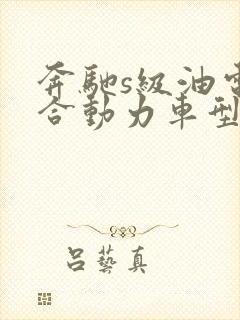 奔馳s級油電
合動力車型
呂藝真